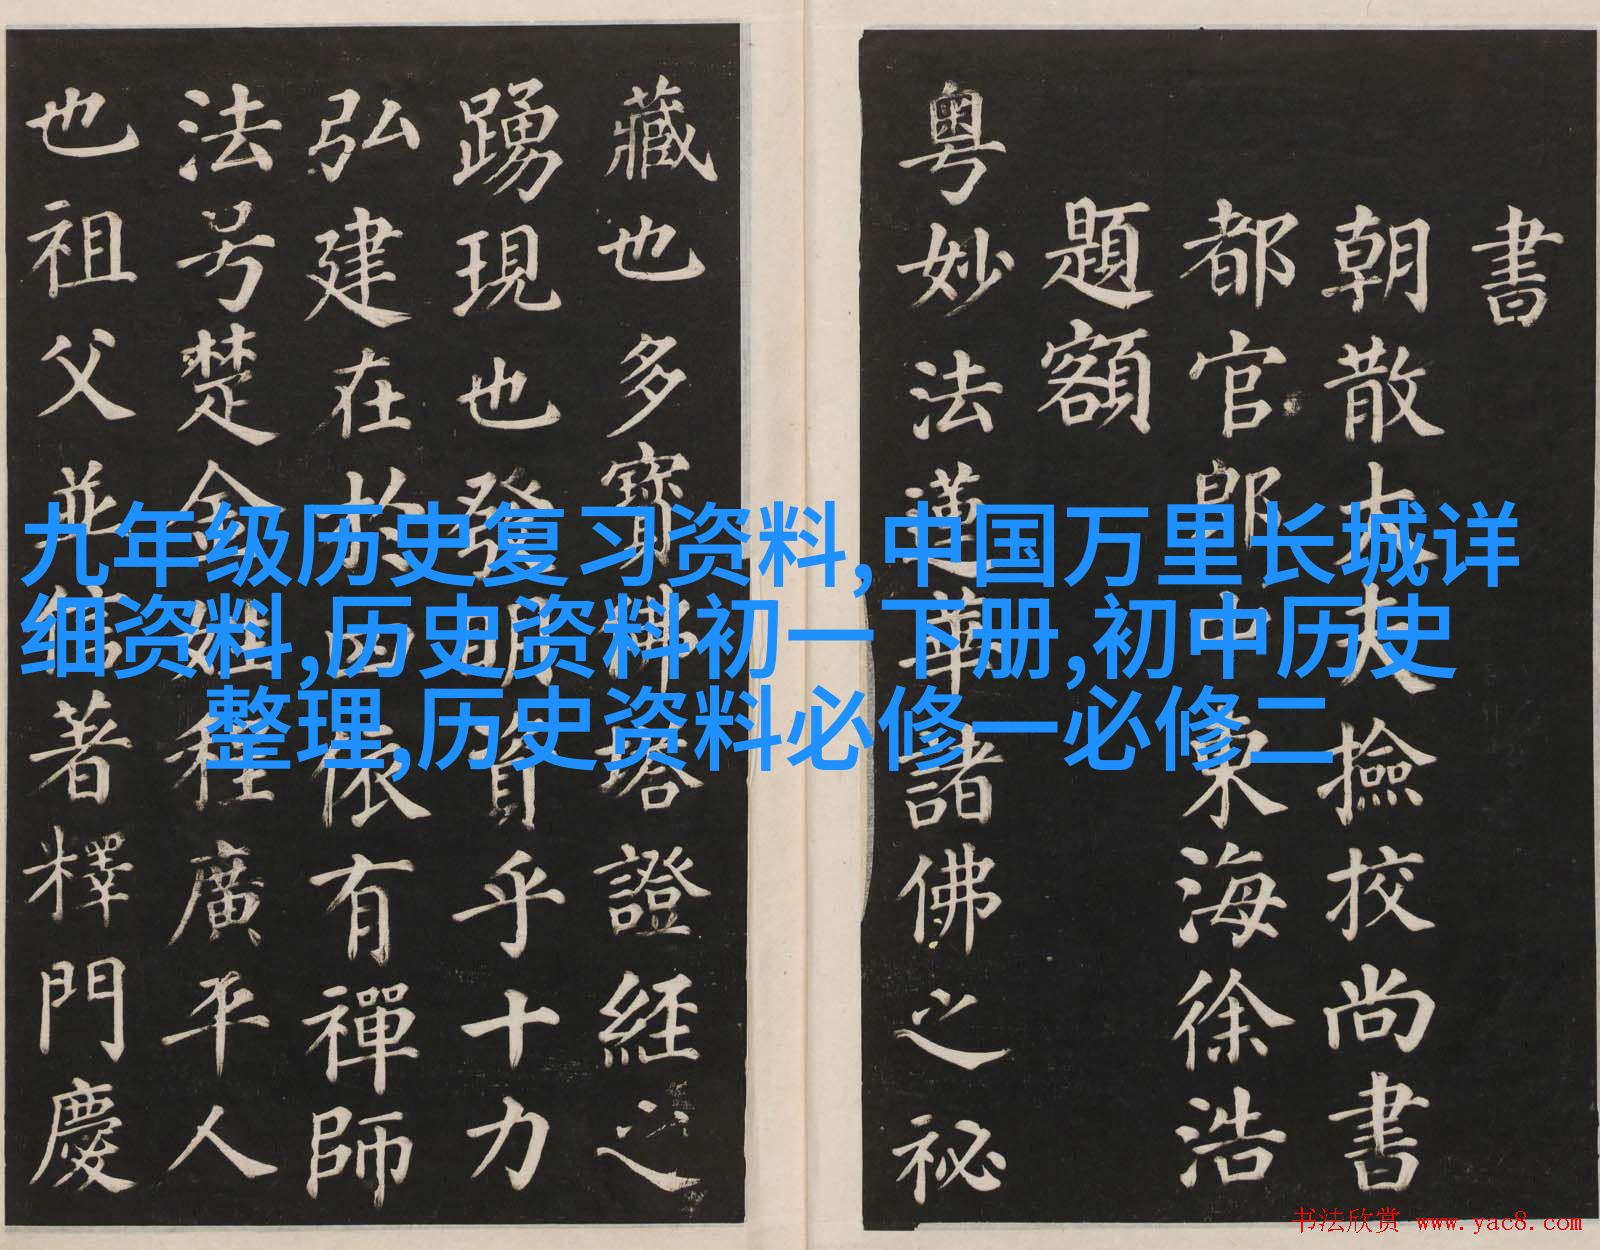 書
朝散大夫撿挍尚書
都官郎中東海徐浩
題額
粵妙法蓮華諸佛之祕
藏也多寶佛塔證經之
踴現也發明資乎十力
弘建在於四依有禪師
法号楚金姓程廣平人
也祖父並信著釋門慶
九年级历史复习资料,中国万里长城详
细资料,历史资料初一下册,初中历史
整理,历史资料必修一必修二
书法欣赏 www.yac8.com